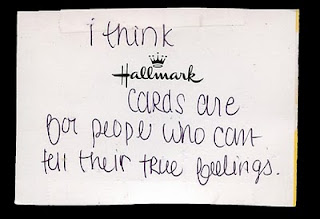 i think
Hallmark
CARDS are
for people who cant
tell their TRUE feelings.